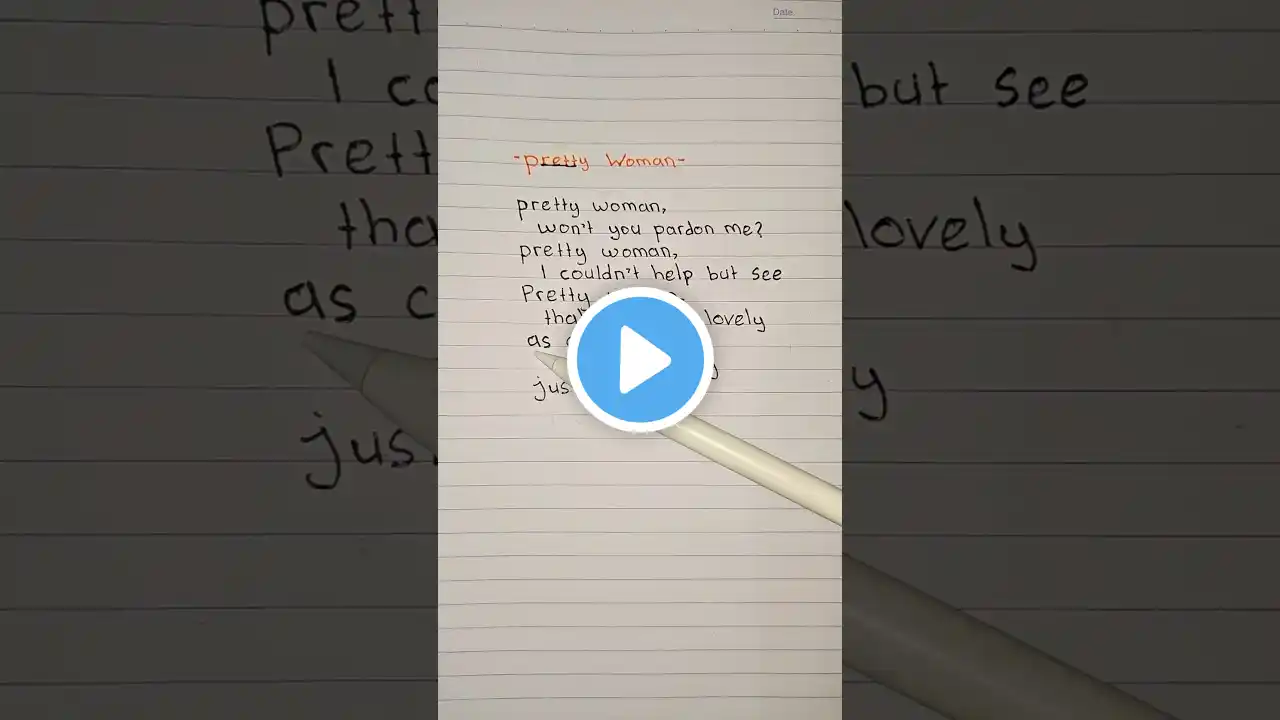 Date
-pretty Woman-
pretty woman,
won't you pardon me?
pretty woman,
I couldn't help but see
Pretty
lovely
as